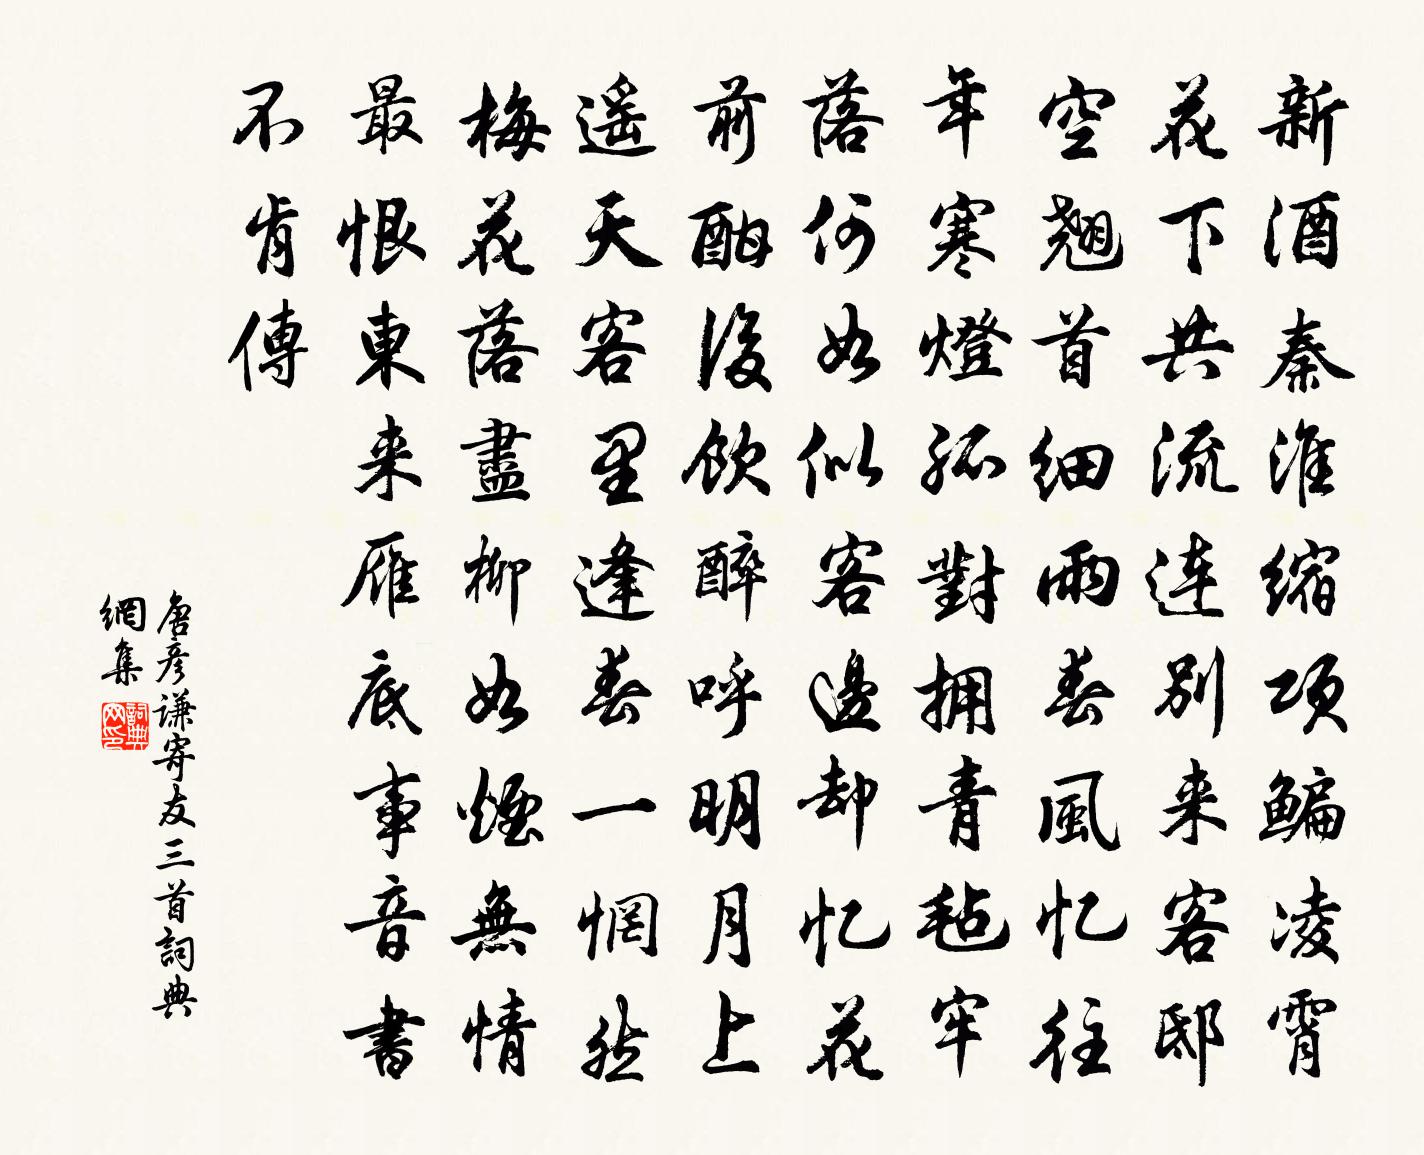 新酒秦淮缩项鳊凌霄
花下共流连别来客邸
空翘首细雨春風忆往
年寒燈孤對拥青毡牢
落何如似客邊却忆花
前酣後飲醉呼明月上
遥天客里逢春一惘然
梅花落盡柳如煙無情
最恨東来雁底事音書
不肯傳
唐彦谦寄友三首詞典
網集
詞典网印